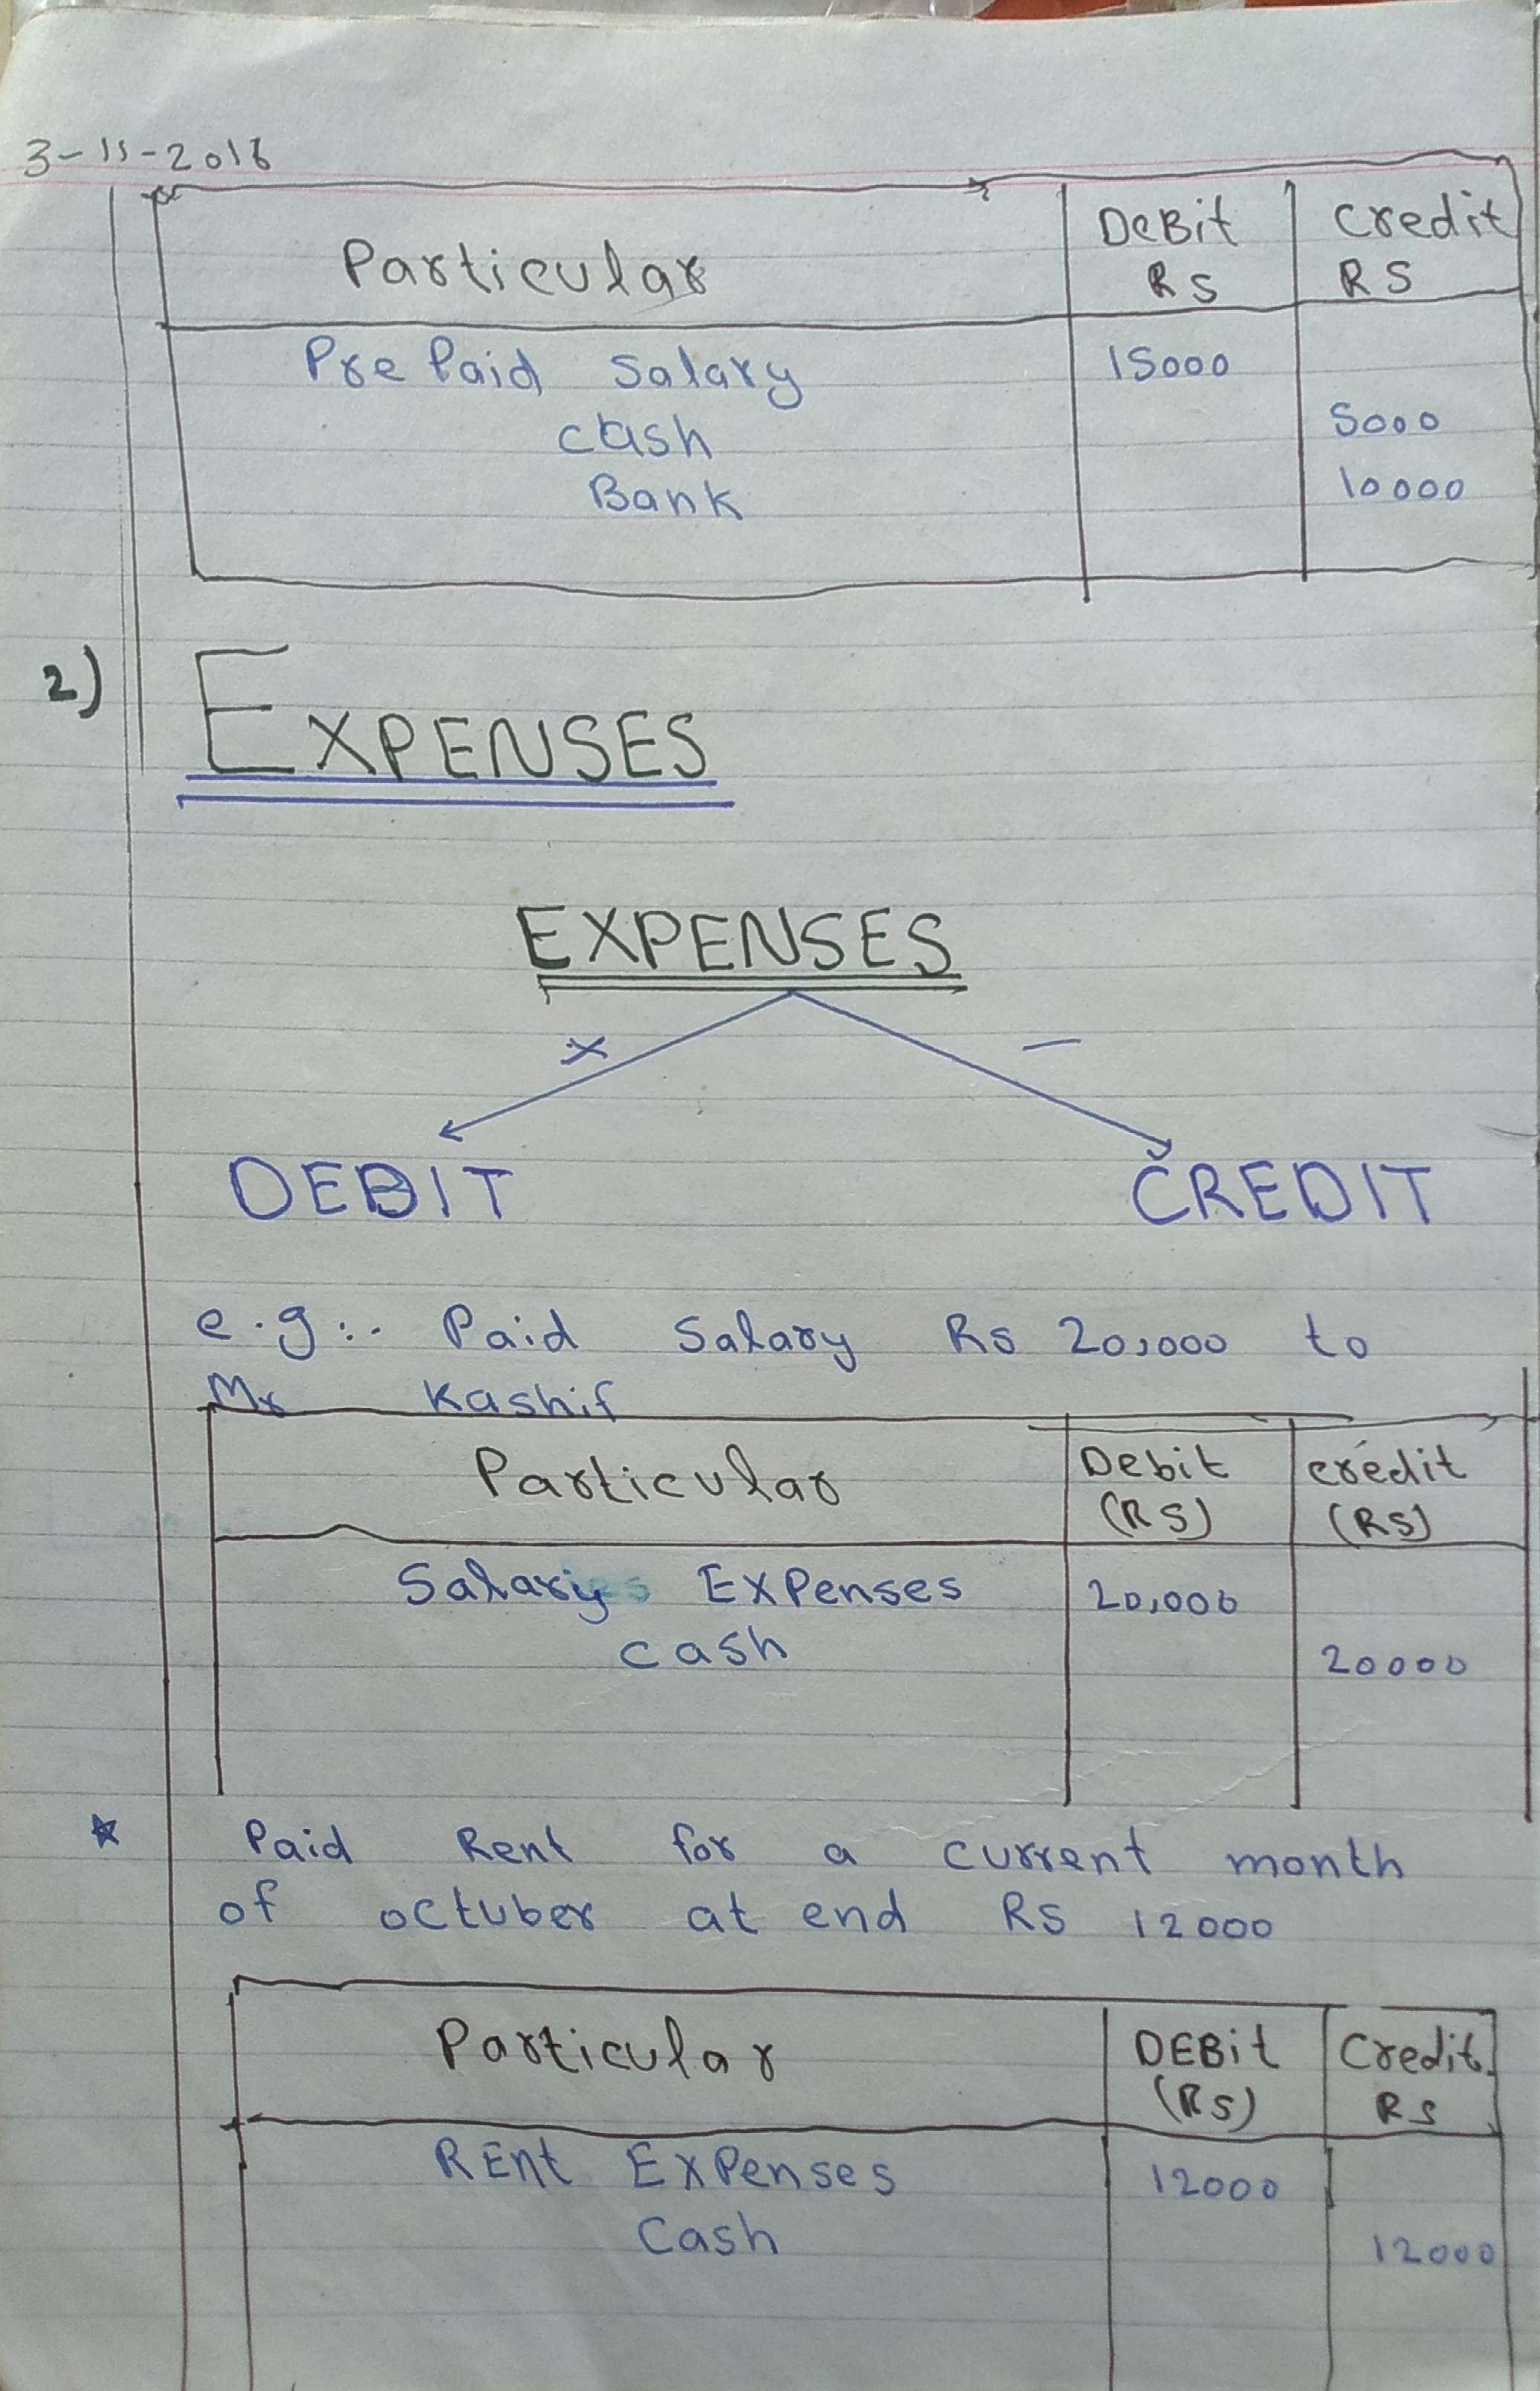 3-11-2016
Particular DeBit Credit
RS RS
PrePaid Salary 15000
cash 5000
Bank 10000
2) EXPENSES
EXPENSES
+ -
DEBIT CREDIT
e.g:. Paid Salary Rs 20,000 to
Mr Kashif
Particular Debit credit
(RS) (RS)
Salary Expenses 20,000
cash 20000
* Paid Rent for a current month
of octuber at end Rs 12000
Particular DEBit Credit
(RS) RS
REnt ExPenses 12000
Cash 12000